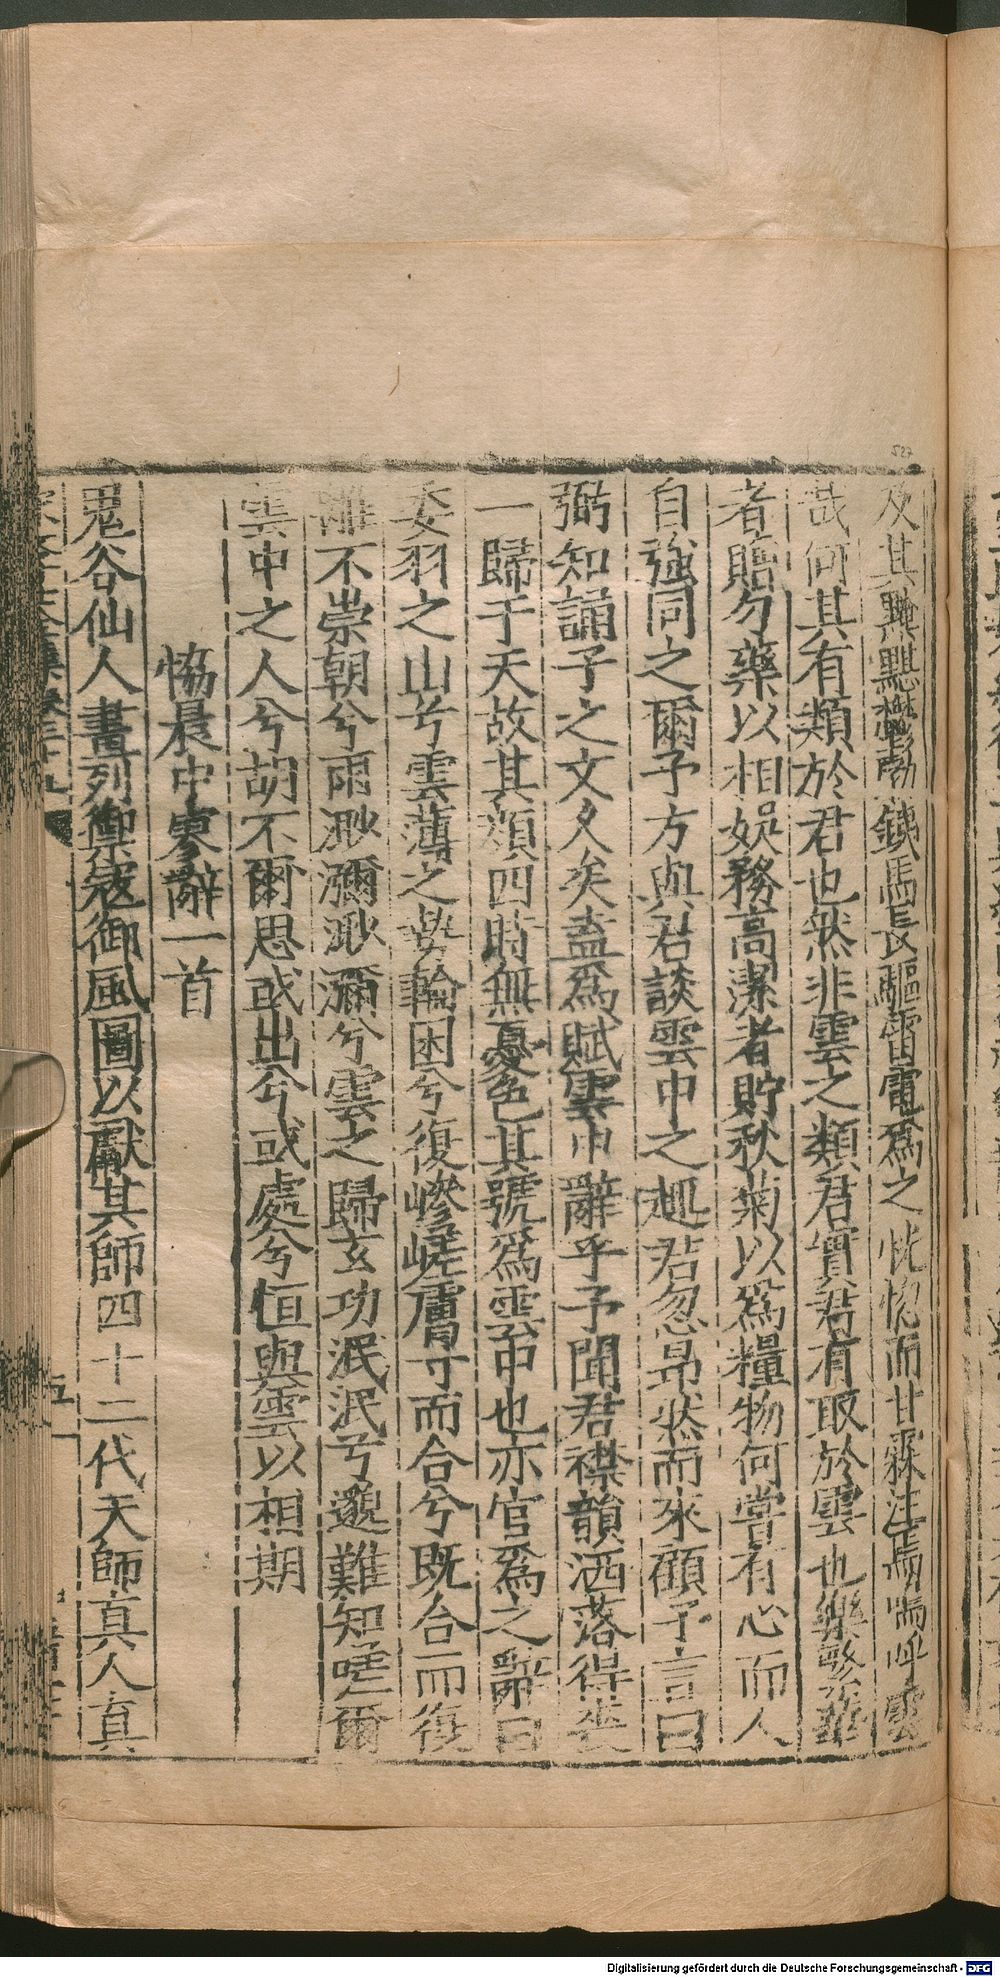 及其黝黮欝勃鐵馬長驅雷電爲之恍惚而甘霖注焉嗚呼雲
哉何其有類於君也然非雲之類君實君有取於雲也樂繁華
者贈勺藥以相娛務高潔者貯秋菊以爲糧物何嘗有心而人
自強同之爾予方與君談雲中之趣君忽昂然而來顧予言曰
弼知誦子之文久矣盍爲賦雲中辭乎予聞君襟韻洒落得喪
一歸于天故其類四時無憂色其號爲雲中也亦宜爲之辭曰
委羽之山兮雲薄之紫輪囷兮復嵾嵯膚寸而合兮既合而復
離不崇朝兮雨瀰瀰兮雲之歸玄功泯泯兮邈難知嗟爾
雲中之人兮胡不爾思或出兮或處兮恒與雲以相期
恊晨中寥辭一首
鬼谷仙人畫列禦寇御風圖以獻其師四十二代天師真人真
五
527
Digitalisierung gefördert durch die Deutsche Forschungsgemeinschaft - DFG